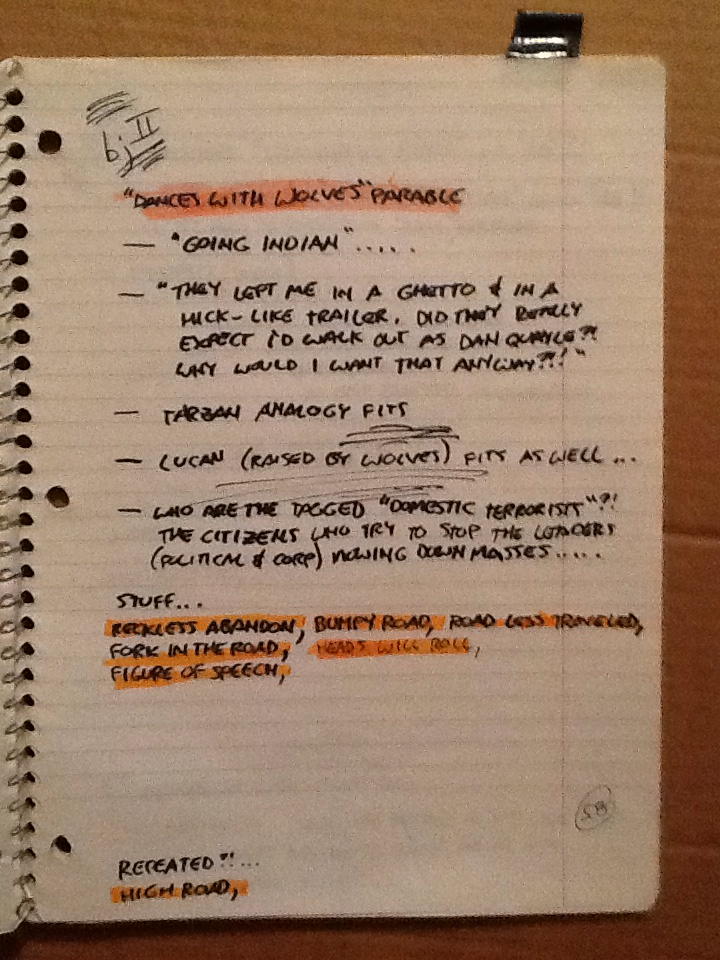 II
bj
"DANCES WITH WOLVES" PARABLE
— "GOING INDIAN".....
— "THEY LEFT ME IN A GHETTO & IN A
HICK-LIKE TRAILER. DID THEY REALLY
EXPECT I'D WALK OUT AS DAN QUAYLE?!
WHY WOULD I WANT THAT ANYWAY?!!"
— TARZAN ANALOGY FITS
— LUCAN (RAISED BY WOLVES) FITS AS WELL...
— WHO ARE THE TAGGED "DOMESTIC TERRORISTS"?!
THE CITIZENS WHO TRY TO STOP THE LEADERS
(POLITICAL & CORP) MOWING DOWN MASSES.....
STUFF...
RECKLESS ABANDON, BUMPY ROAD, ROAD LESS TRAVELED,
FORK IN THE ROAD, HEADS WILL ROLL,
FIGURE OF SPEECH,
REPEATED?!...
HIGH ROAD,